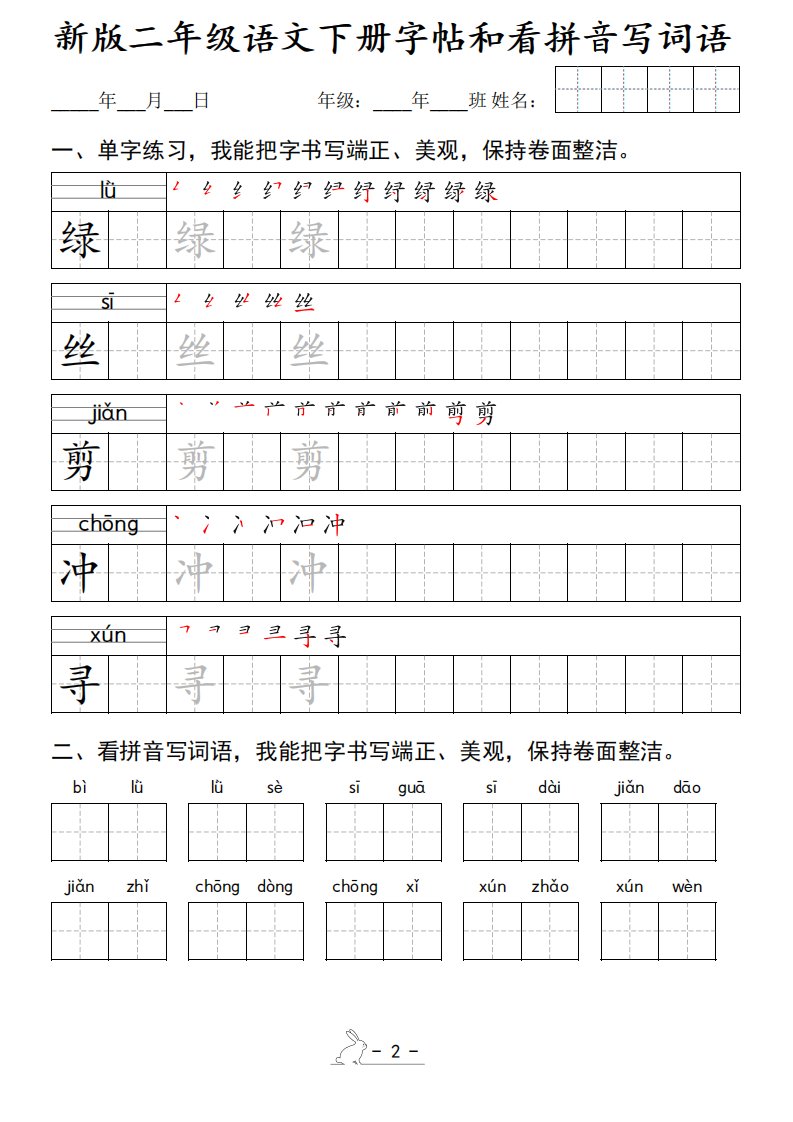 新版二年级语文下册字帖和看拼音写词语
_____年___月___日 年级：____年____班 姓名：
一、单字练习，我能把字书写端正、美观，保持卷面整洁。
lǜ
绿 绿 绿
sī
丝 丝 丝
jiǎn
剪 剪 剪
chōng
冲 冲 冲
xún
寻 寻 寻
二、看拼音写词语，我能把字书写端正、美观，保持卷面整洁。
bì lǜ lǜ sè sī guā sī dài jiǎn dāo
jiǎn zhǐ chōng dòng chōng xǐ xún zhǎo xún wèn
- 2 -